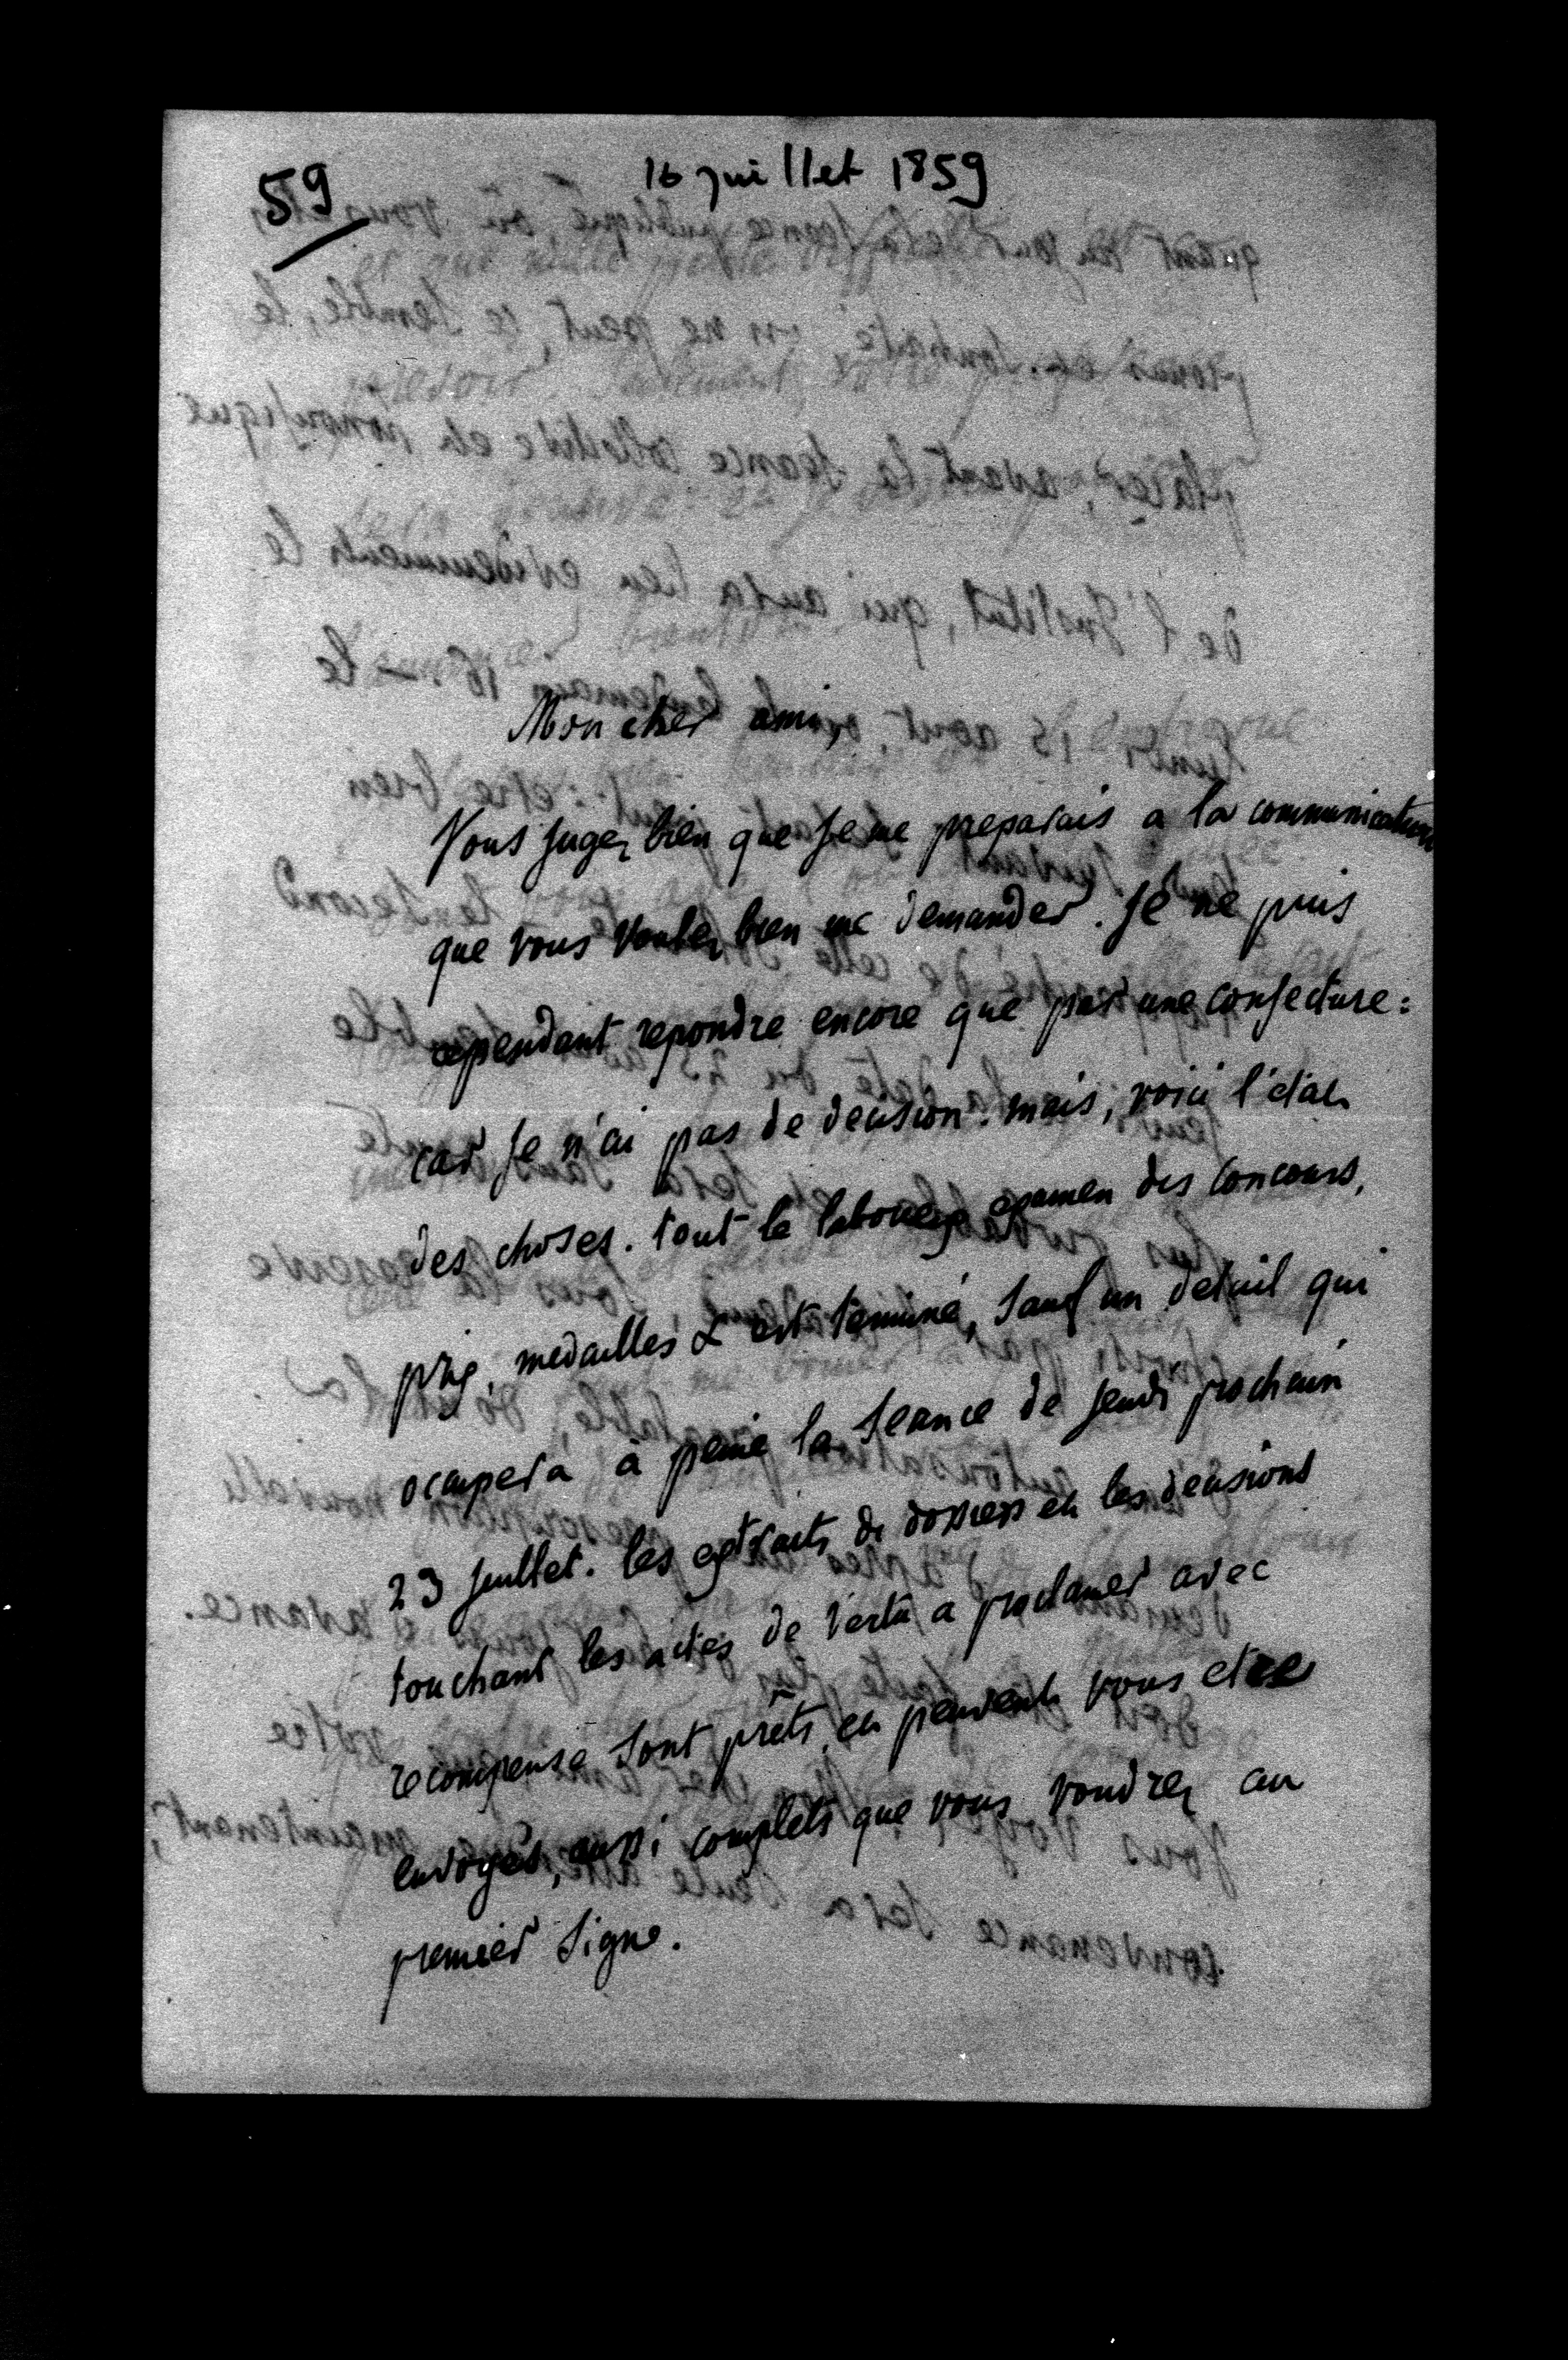 59
16 juillet 1859
Mon cher ami,
Vous jugez bien que je me preparais a la communication
que vous voulez bien me demander. Je ne puis
cependant repondre encore que par une conjecture:
car je n'ai pas de decision. mais, voici l'etat
des choses. tout le laborieux examen des concours,
prix, medailles & est terminé, sauf un detail qui
occupera à peine la seance de jeudi prochain
23 juillet. les extraits de dossiers et les decisions
touchant les actes de vertu a proclamer avec
recompense sont prêts, et peuvent vous etre
envoyés, aussi complets que vous voudrez au
premier signe.